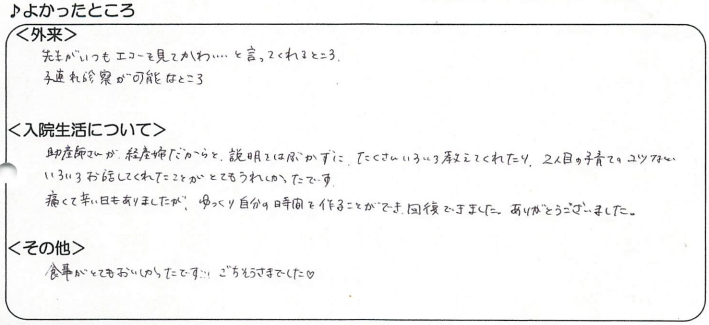 ♪よかったところ
＜外来＞
先生がいつもエコーを見てかわい…と言ってくれるところ。
子連れ診察が可能なところ
＜入院生活について＞
助産師さんが、経産婦だからと、説明をはぶかずに、たくさんいろいろ教えてくれたり、2人目の子育てのコツなど
いろいろお話してくれたことがとてもうれしかったです
痛くて辛い日もありましたが、ゆっくり自分の時間を作ることができ、回復できました。ありがとうございました。
＜その他＞
食事がとてもおいしかったです… ごちそうさまでした♡